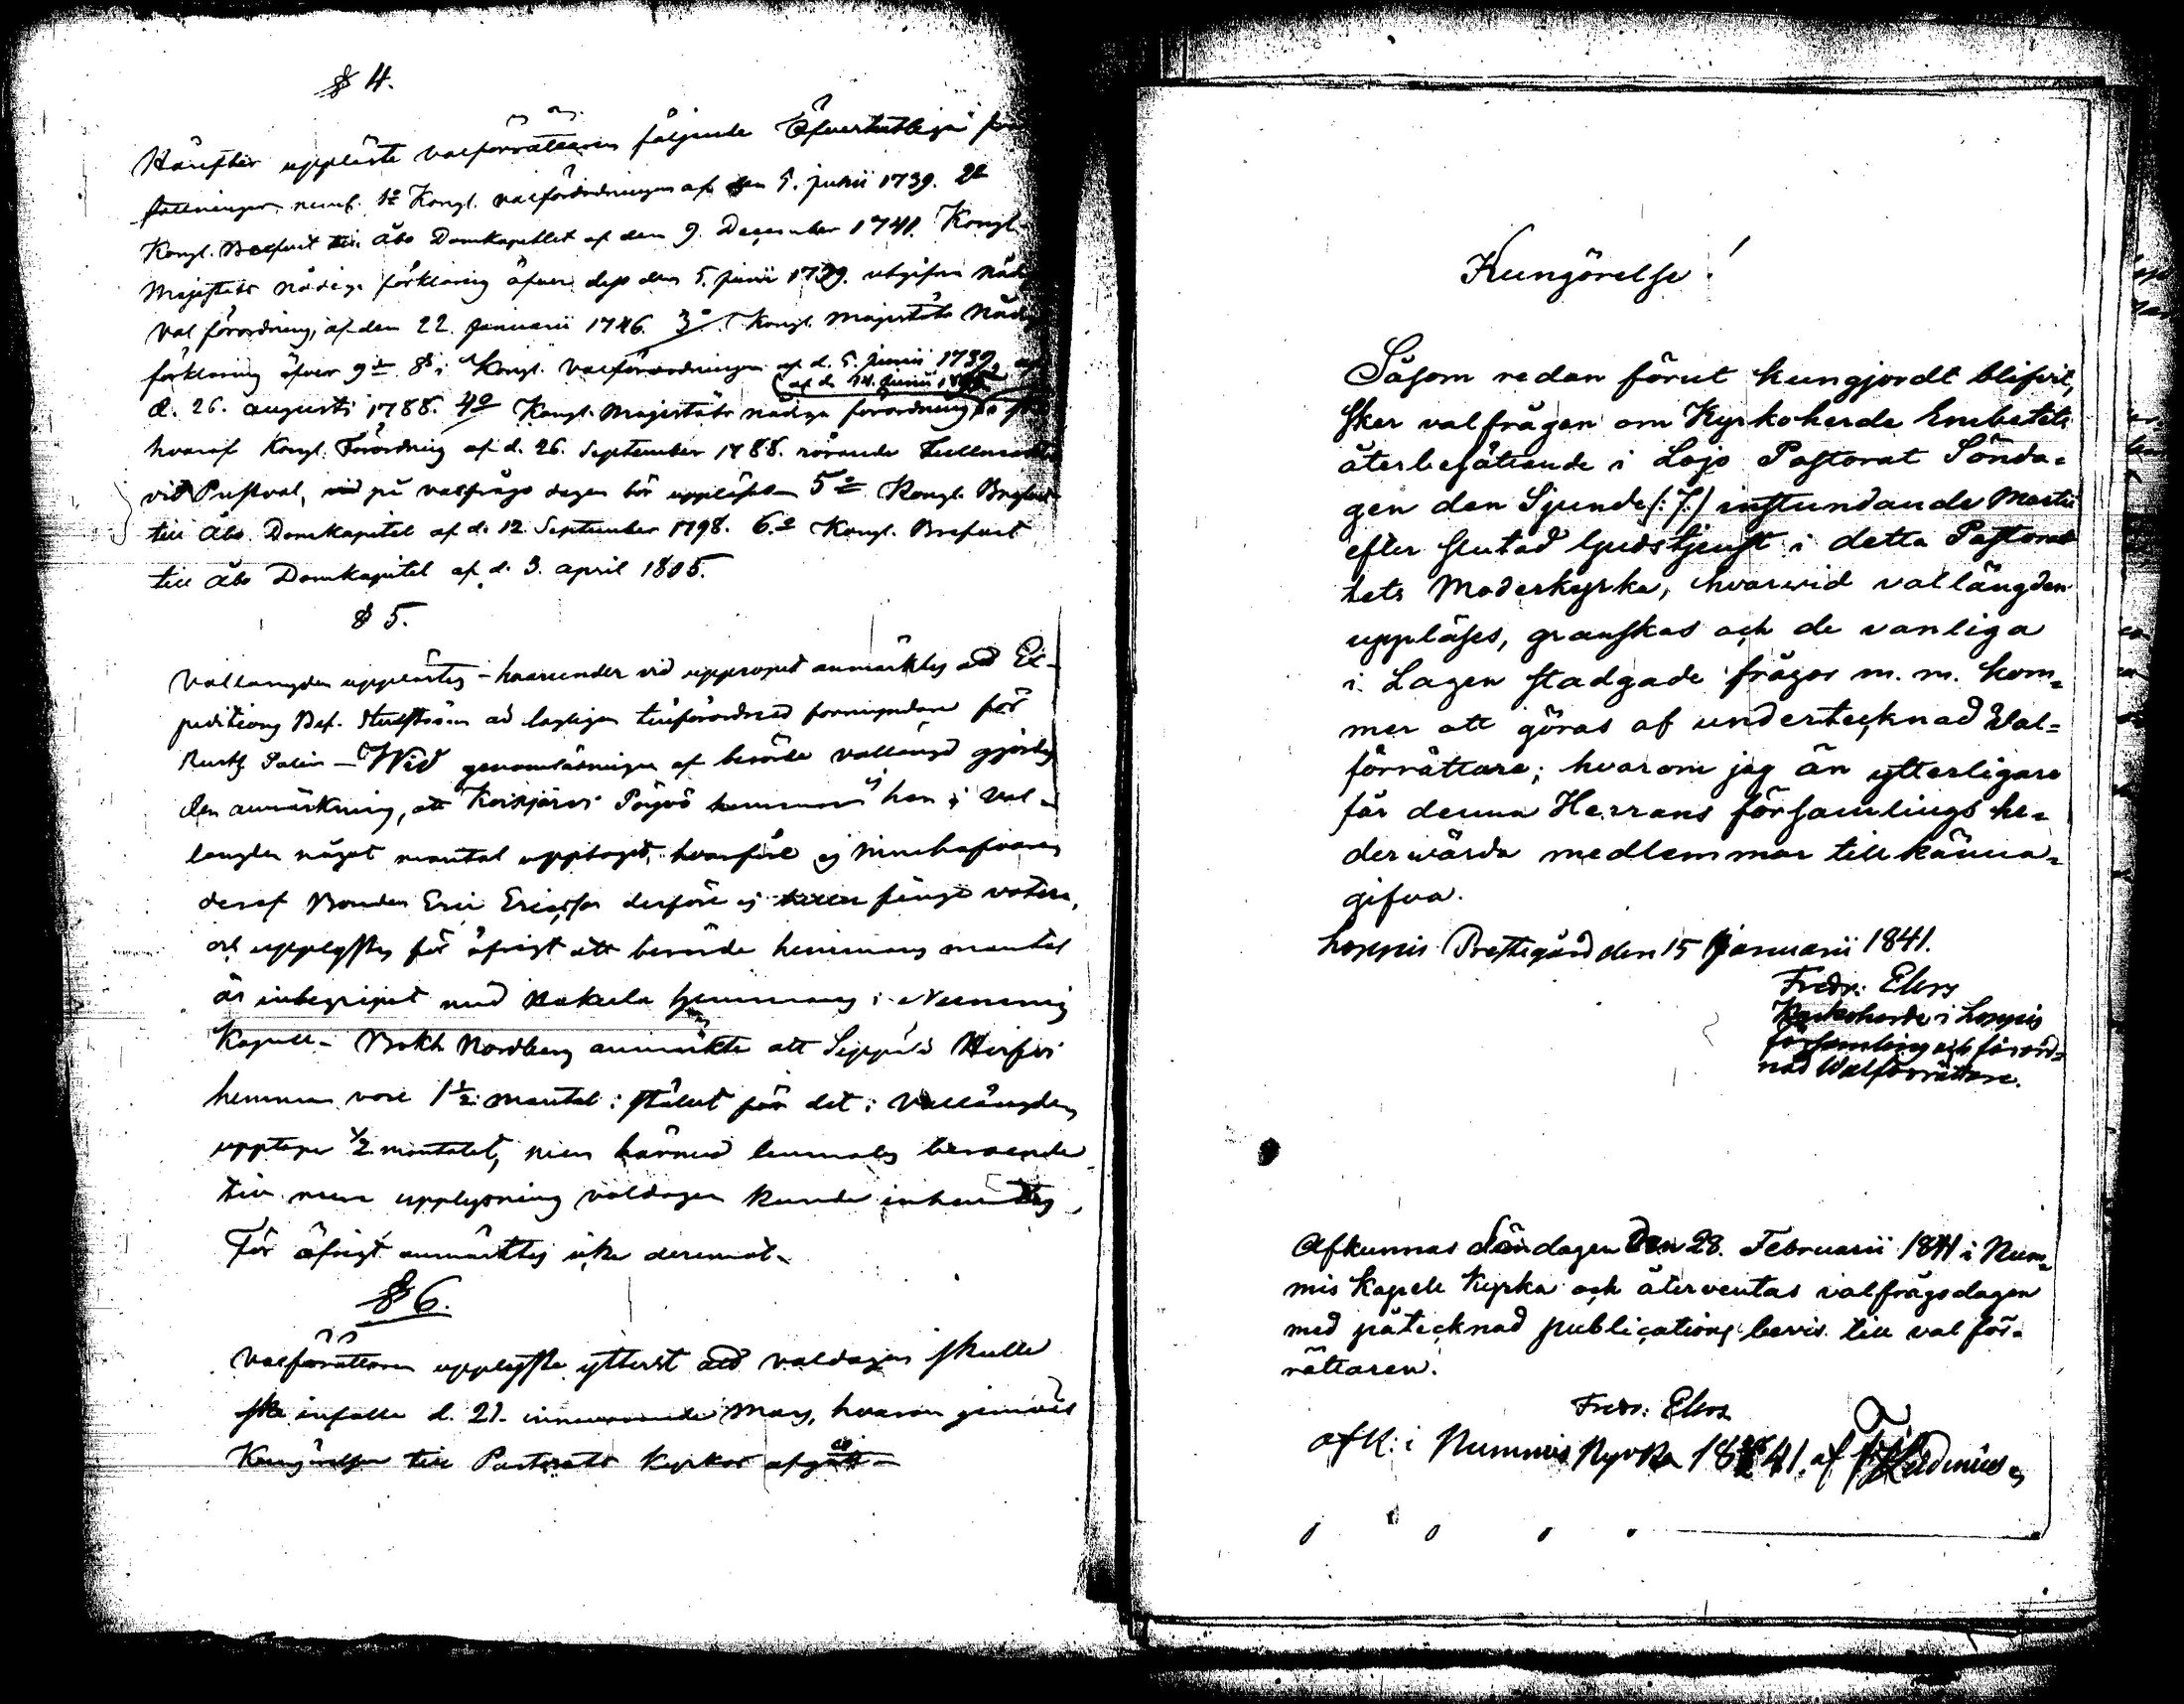 § 4.
Härefter uppläste valförrättaren följande Öfverhetliga för
fattningar, neml. 1o Kongl. valförordningen af den 5. junii 1739. 2o
Kongl. Brefvet till Åbo Domkapitlet af den 9. December 1741. Kongl.
Majestäts nådiga förklaring öfver dess den 5. junii 1739. utgifna nåd
val förordning, af den 22. Januarii 1746. 3o Kongl. Majestäts Nåd
förklaring öfver 9de § i Kongl. Valförordningen af d. 5. junii 1739, af
d. 26. augusti 1788. 4o Kongl. Majestäts nådiga förordning af d. 14. Junii
hvaraf Kongl. Förordning af d. 26. September 1788. rörande Fullmakter
vid Prestval, på valfrågo dagen bör uppläsas 5o Kongl. Brefvet
till Åbo Domkapitel af d. 12 September 1798. 6.o Kongl. Brefvet
till Åbo Domkapitel af d. 3. april 1805.
§ 5.
Vallängden upplästes - härunder vid uppropet anmärktes att Ex-
peditions Bef. ad lagligen tillförordnad förmyndare för
Rusth. Palin - Wid genomläsningen af berörde vallängd gjordes
den anmärkning, att Koisjärvi Pöyrö hemman ej har i val-
längden något mantal upptaget, hvarföre ej innehafvaren
deraf Bonden Eric Ericsson derföre ej finge votera,
och upplystes för öfrigt att berörde hemmans mantal
är inbegripet med Nakula hemmans i Nummis
Kapell - Bokh. Nordberg anmärkte att Seppälä Hirvi
hemman vore 1 1/2 mantal i stället för det i Vallängden
upptagne 1/2 mantalet, men härmed lemnades beroende
till mera upplysning valdagen kunde inhemtas,
För öfrigt anmärktes icke deremot -
§ 6.
Valförrättaren upplyste ytterst att valdagen skulle
ske infalla d. 21. innevarande Mars, hvarom genom
Kungörelsen till Pastorats kyrkor afgått -
Kungörelse!
Såsom redan förut kungjordt blifvit,
sker valfrågan om Kyrkoherde Embetets
återbesättande i Lojo Pastorat Sönda=
gen den Sjunde /: 7./ instundande Martii
efter slutad Gudstjenst i detta Pastorat
tets Moderkyrka, hvarwid vallängden
uppläses, granskas och de vanliga
i Lagen stadgade frågor m. m. kom=
mer att göras af undertecknad Wal=
förrättare; hvarom jag än ytterligare
får denna Herrans församlings he=
derwärda medlemmar tillkänna=
gifva.
Loppis Prestegård den 15 Januarii 1841.
Fredr: Elers
Kyrkoherde i Loppis
församling och förord=
nad Walförrättare.
Afkunnas Söndagen den 28. Februarii 1841 i Num=
mis Kapell Kyrka och återventas valfrågsdagen
med påtecknad publications bevis till val för=
rättaren.
Fredr: Elers
afk: i Nummis Kyrka 18 28/2 41. af